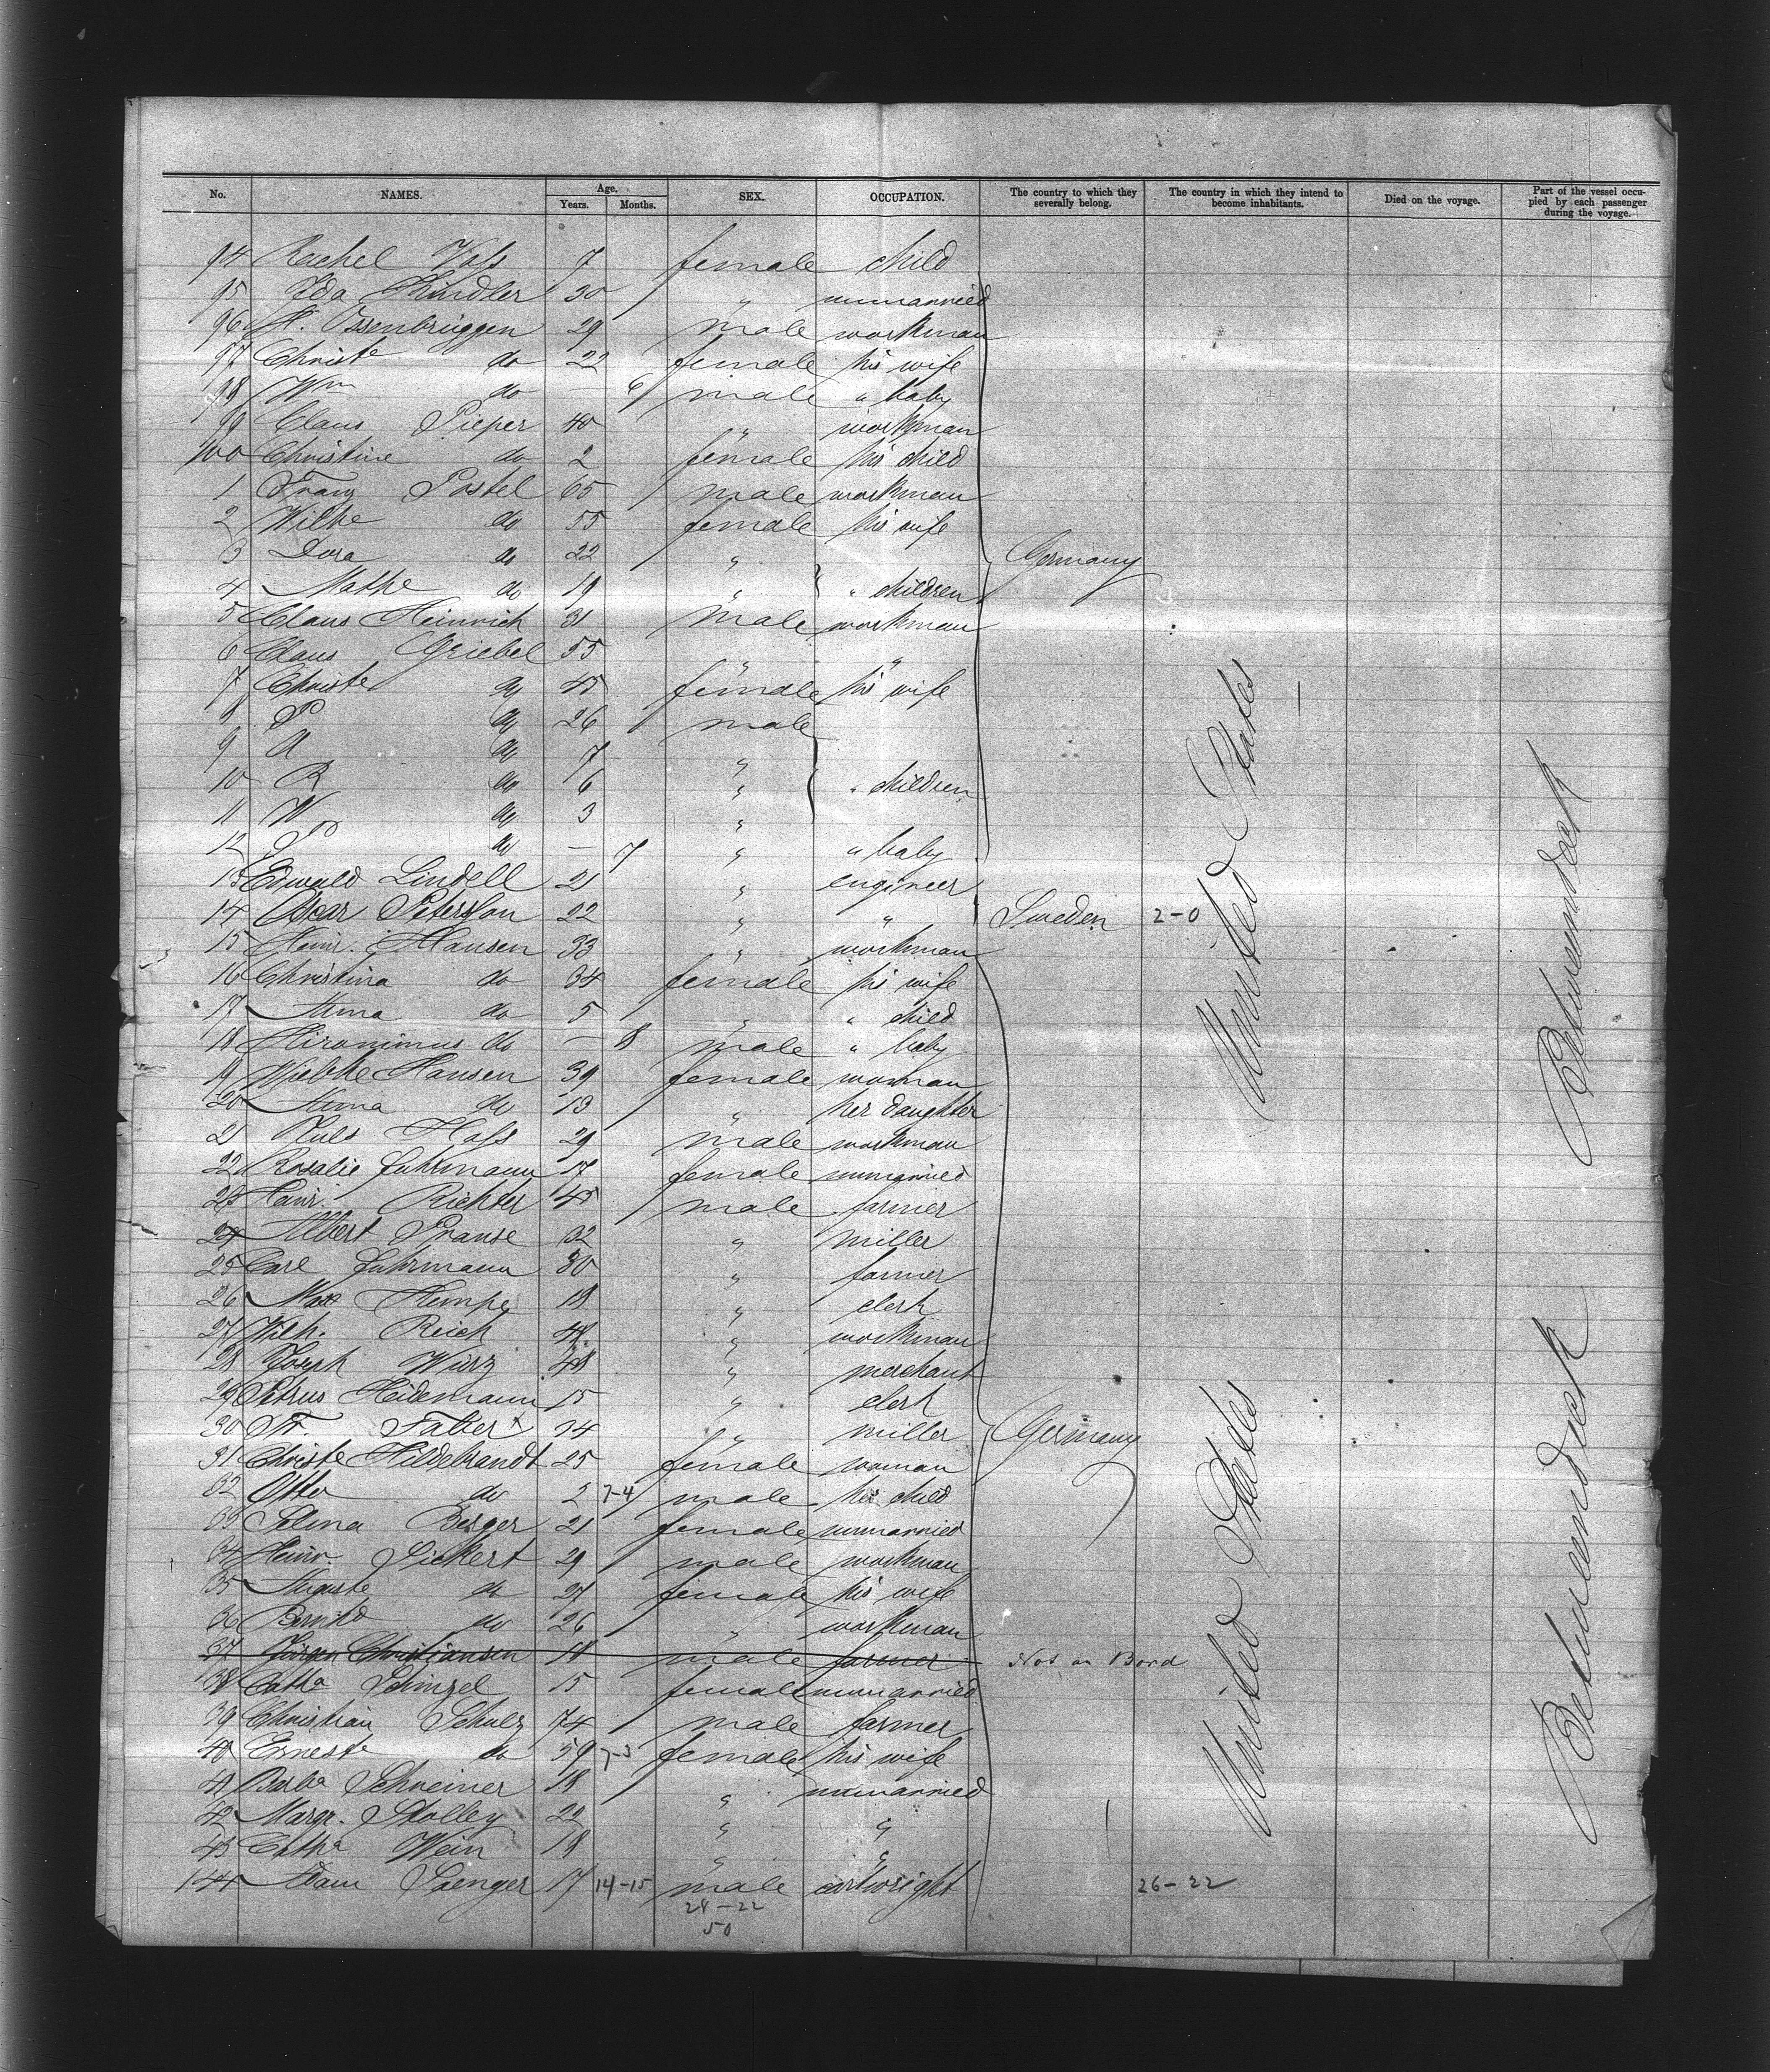 No. NAMES. Age. Years. Months. SEX. OCCUPATION. The country to which they severally belong. The country in which they intend to become inhabitants. Died on the voyage. Part of the vessel occupied by each passenger during the voyage.
94 Rachel Voss 7 female child
95 Ida 30 " unmarried
96 H. Ossenbrüggen 29 male workman
97 Christe do 22 female his wife
98 Wm do — 6 male " baby
99 Claus Pieper 40 " workman
100 Christine do 2 female his child
1 Franz Postel 65 male workman
2 Wilhe do 55 female his wife
3 Dora do 22 " Germany
4 Mathe do 19 " " children
5 Claus Heinrich 31 male workman
6 Claus Griebel 55 " "
7 Christe do 45 female his wife
8 P do 26 male
9 A do 7 "
10 R do 6 " " children
11 W do 3 "
12 P do — 7 " " baby
13 Edwald Lindell 21 " engineer
14 Oscar Petersson 22 " " Sweden 2-0
15 Heinr. Hansen 33 " workman
16 Christina do 34 female his wife
17 Anna do 5 " " child
18 Hironimus do — 8 male " baby
19 Wiebke Hansen 39 female woman
20 Anna do 13 " her daughter
21 Hass 29 male workman
22 Rosalie Fuhrmann 17 female unmarried
23 Heinr. Richter 45 male farmer
24 Albert Pranse 32 " miller
25 Carl Fuhrmann 30 " farmer
26 Max Hempe 18 " clerk
27 Wilh. Reich 44 " workman
28 Joseph Wirz 48 " merchant
29 Petrus Heidemann 15 " clerk
30 Fr. Faber 24 " miller Germany
31 Christe Hildebrandt 25 female woman
32 Otto do 2 7-4 male her child
33 Selma Berger 21 female unmarried
34 Heinr. Sickert 29 male workman
35 Auguste do 27 female his wife
36 do 26 " workman
37 Jürgen Christiansen 18 male farmer Not on Bord
38 Catha Schinzel 15 female unmarried
39 Christian Schulz 74 male farmer
40 Erneste do 59 7-3 female his wife
41 Barba Schreiner 18 " unmarried
42 Margr. Stolley 22 " "
43 Cathe Wein 18 " "
144 Adam Saenger 17 14-15 male cartwright 26-22
28-22
50
United States
Betweendeck
United States
Betweendeck